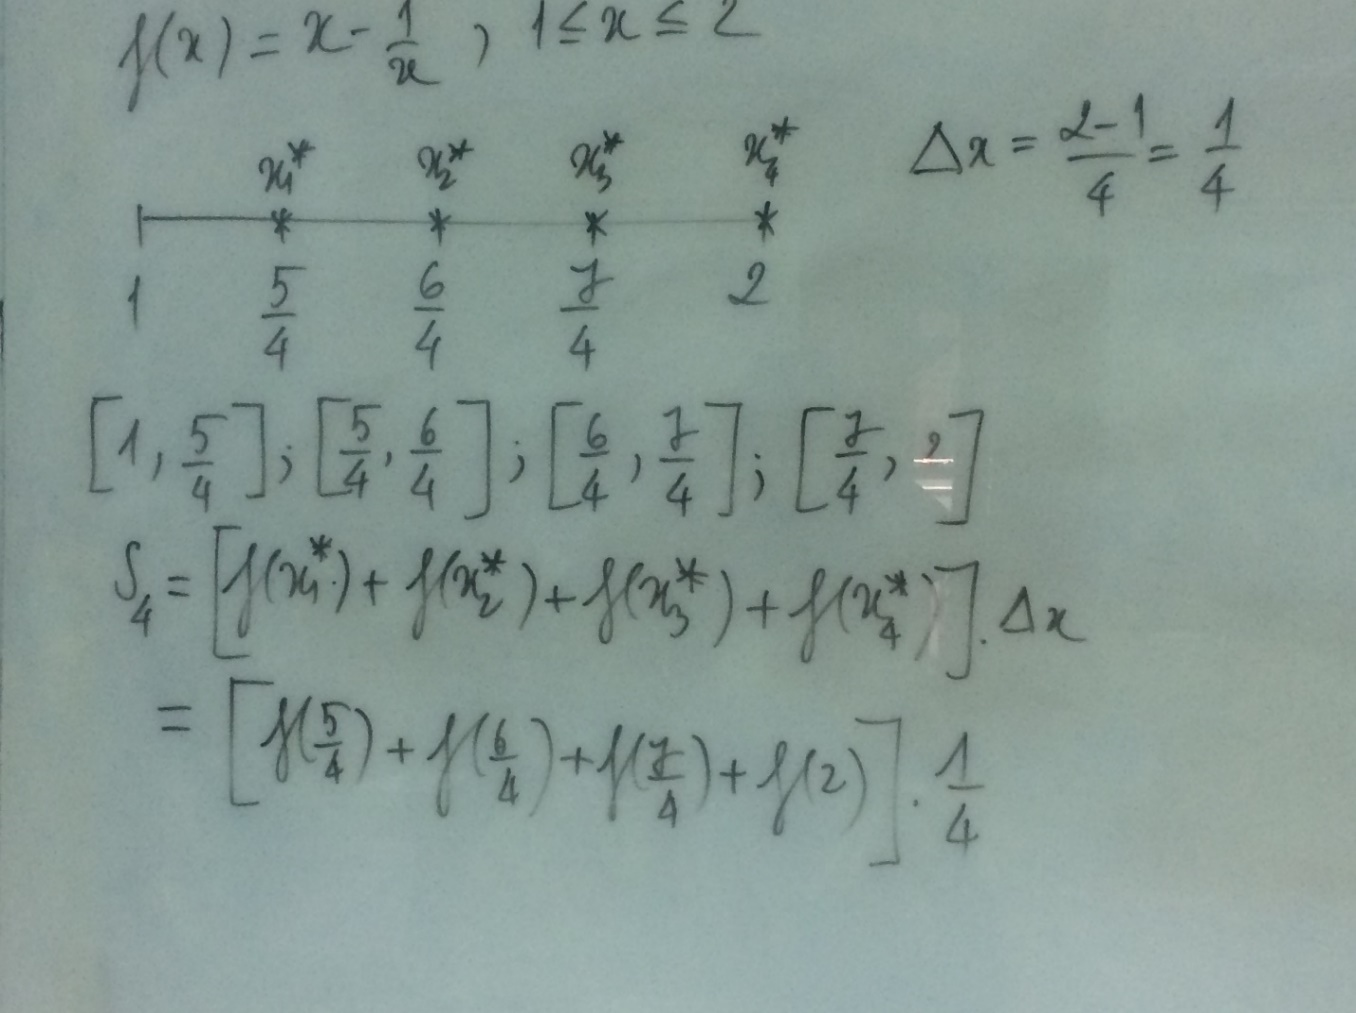 f(x) = x - 1/x , 1 ≤ x ≤ 2
x₁* x₂* x₃* x₄* Δx = (2-1)/4 = 1/4
1 5/4 6/4 7/4 2
[1, 5/4] ; [5/4, 6/4] ; [6/4, 7/4] ; [7/4, 2]
S₄ = [f(x₁*) + f(x₂*) + f(x₃*) + f(x₄*)] . Δx
= [f(5/4) + f(6/4) + f(7/4) + f(2)] . 1/4